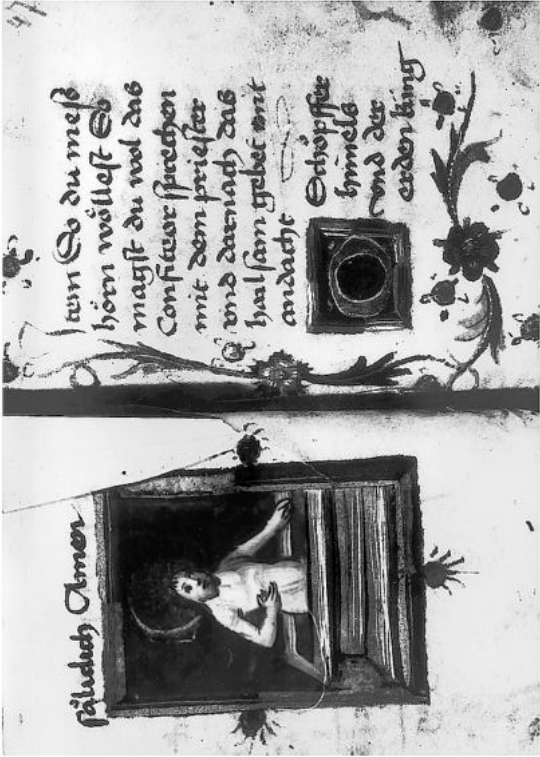 säliclich Amen
47
Item So du meß
hörn wöllest So
magst du wol das
Confiteor sprechen
mit dem priester
vnd darnach das
hailsam gebet mit
andacht
Schöpffer
himels
vnd der
erden küng